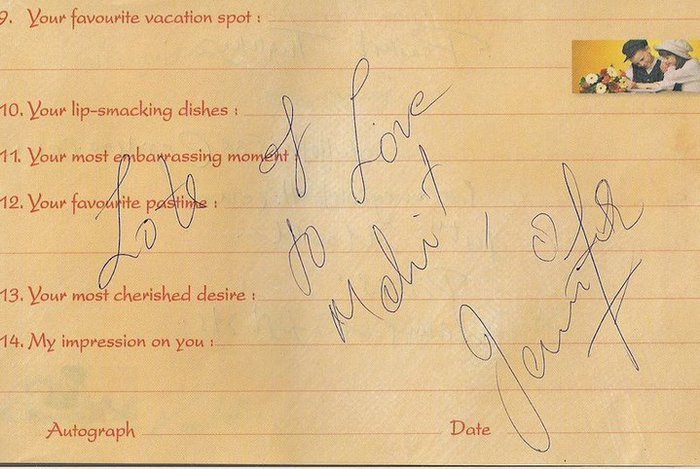 9. Your favourite vacation spot :
10. Your lip-smacking dishes :
11. Your most embarrassing moment :
12. Your favourite pastime :
13. Your most cherished desire :
14. My impression on you :
Autograph Date
Lots of Love
to Mohit
Jennifer